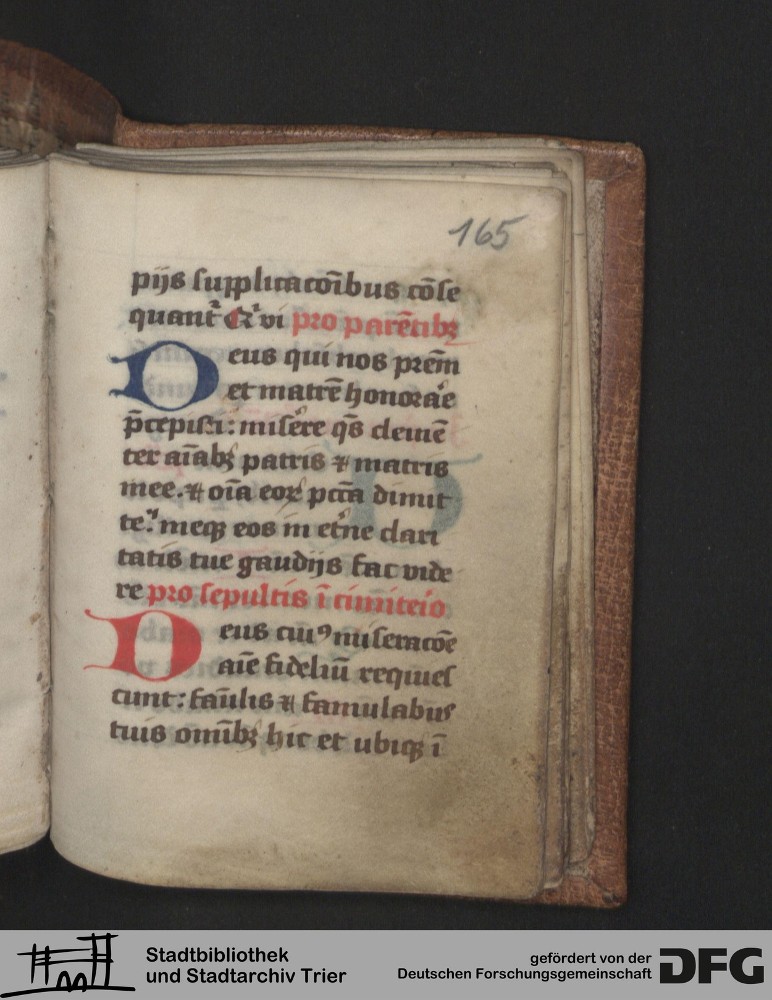 165
pijs supplicacōibus cōse
quant᷑ Q᷑ vi pro parētibꝫ
Deus qui nos pr̄em
et matrē honorar̄e
p̄cepisti: misēre q̄s clemē
ter aīabꝫ patris ⁊ matris
mee. ⁊ oīa eoꝝ pcc̄a dimit
te: meqꝫ eos in et̄ne clari
tatis tue gaudijs fac vide
re pro sepultis ī cimiteio
Deus cuiꝰ miseracōe
aīe fideliū requies
cunt: famul̄is ⁊ famulabus
tuis omībꝫ hic et ubiqꝫ ī
Stadtbibliothek
und Stadtarchiv Trier
gefördert von der
Deutschen Forschungsgemeinschaft
DFG